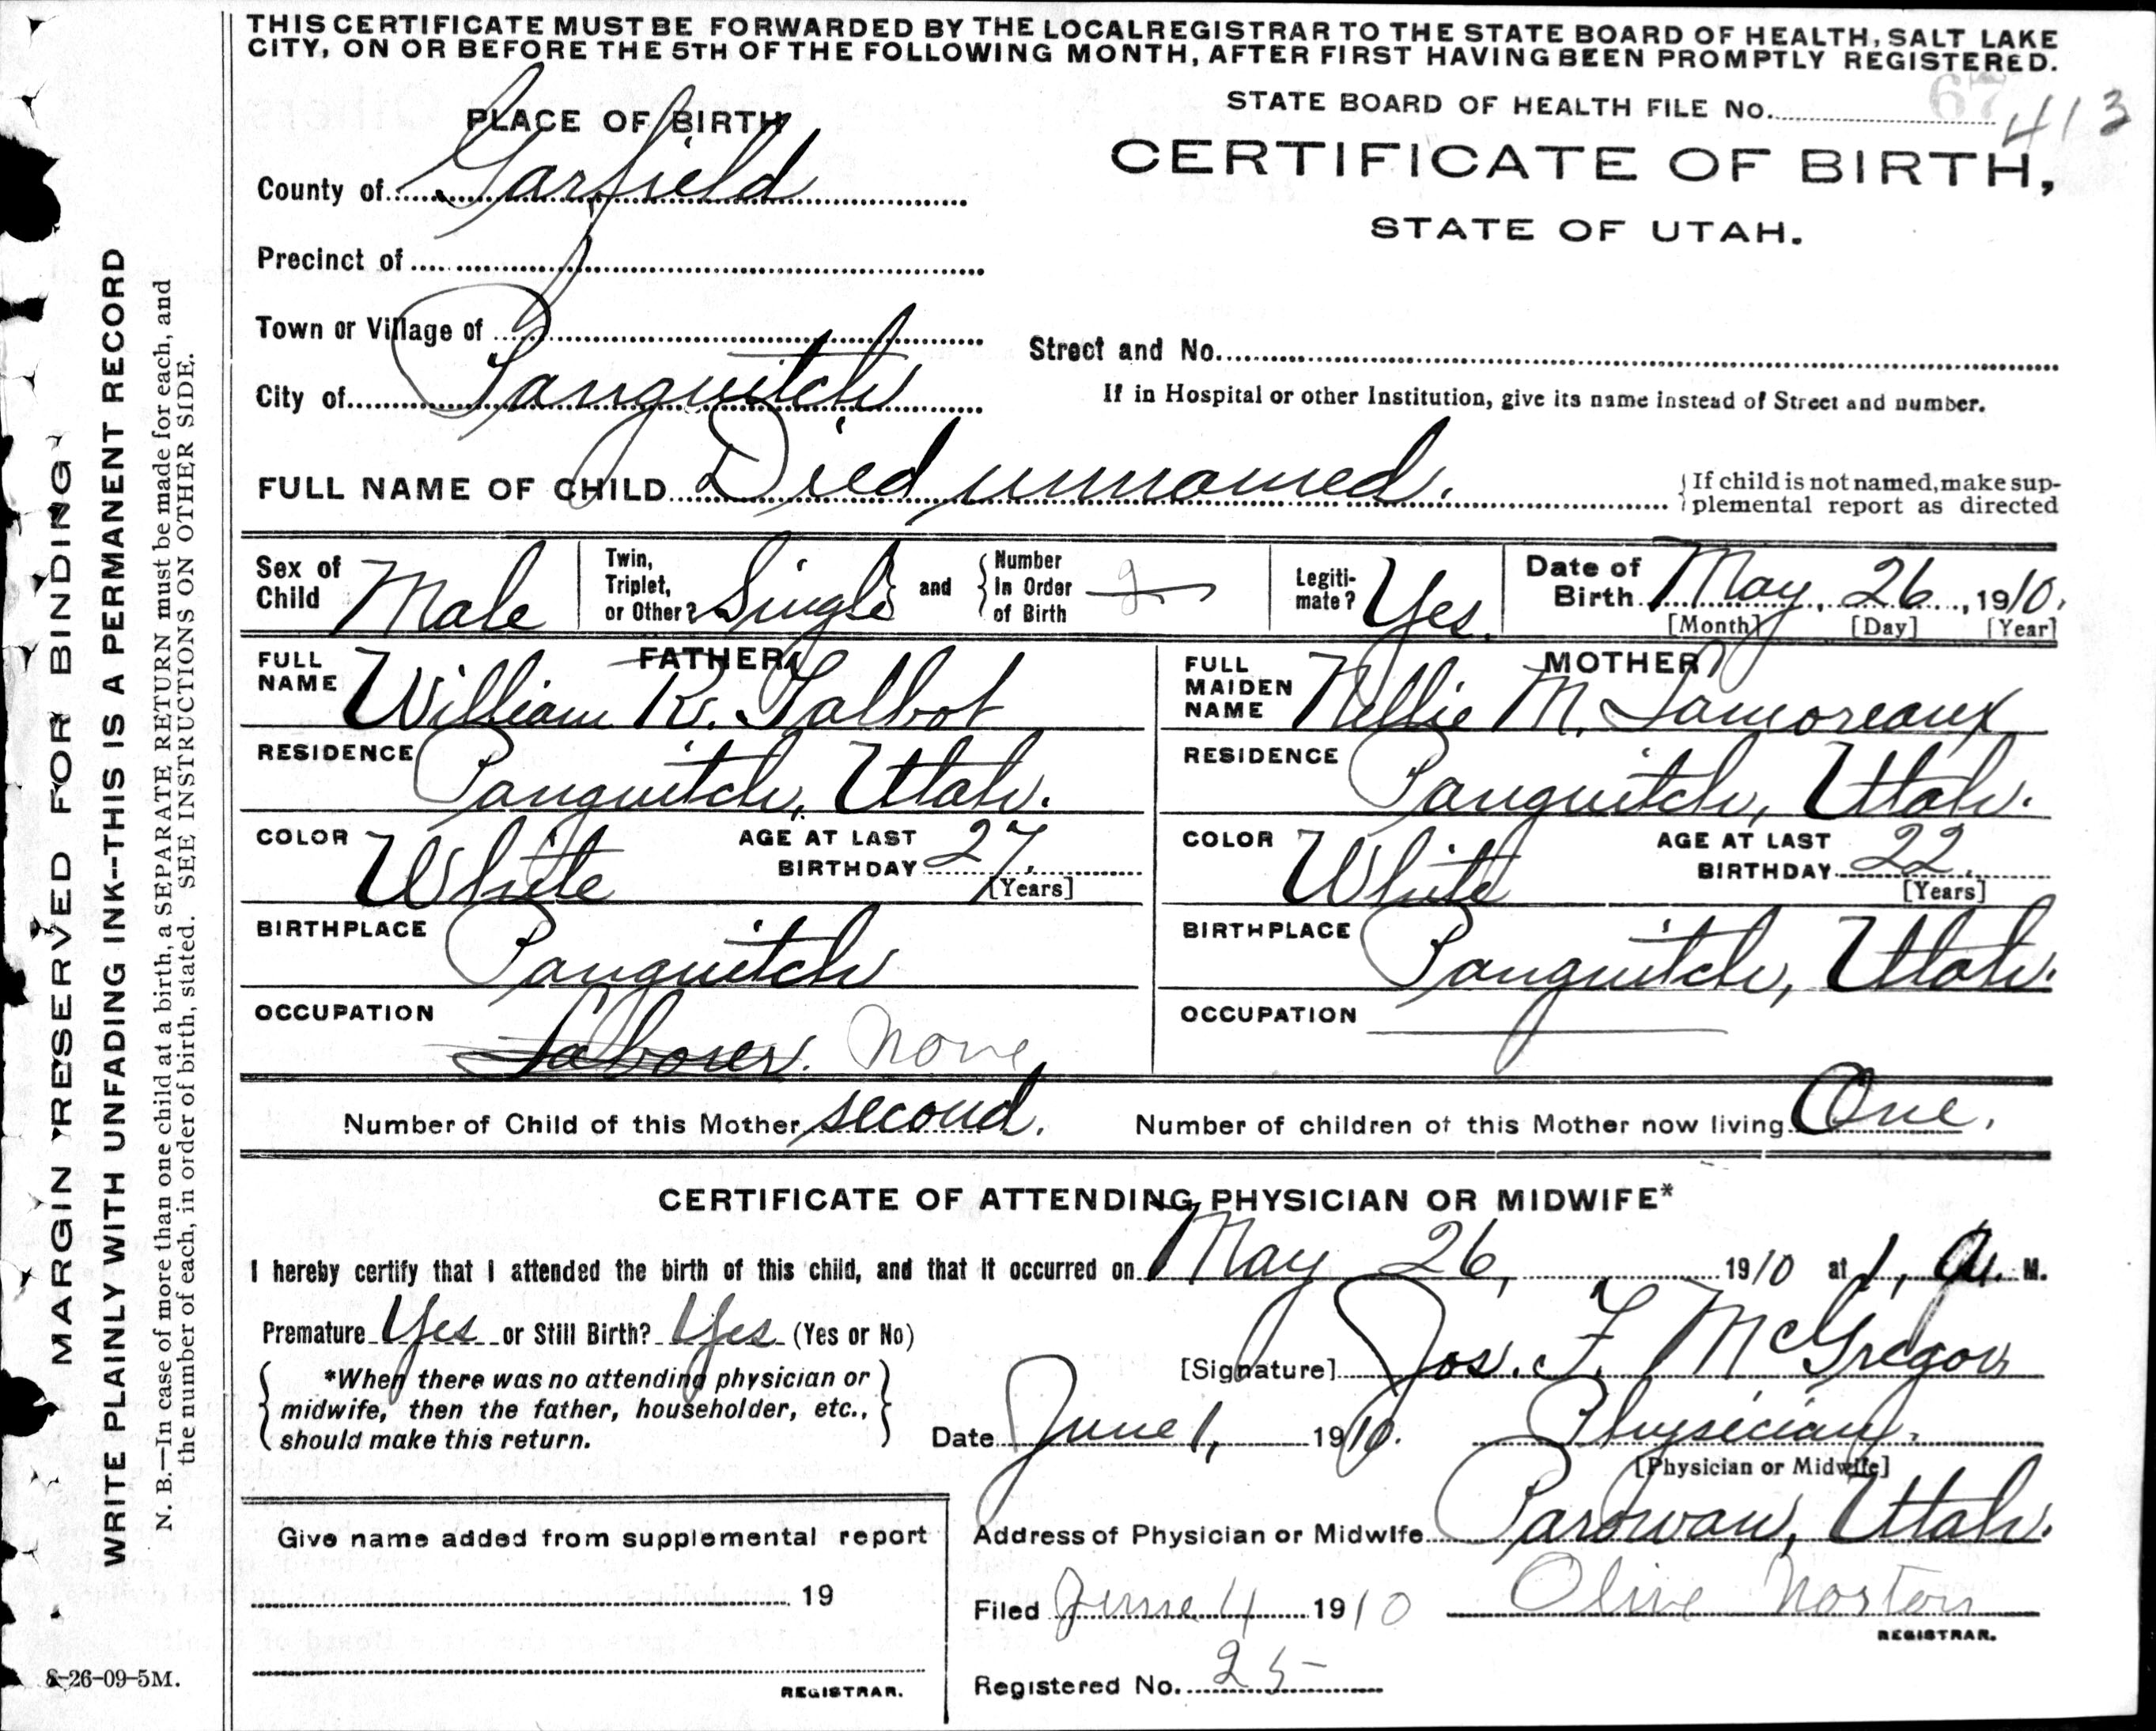 THIS CERTIFICATE MUST BE FORWARDED BY THE LOCAL REGISTRAR TO THE STATE BOARD OF HEALTH, SALT LAKE
CITY, ON OR BEFORE THE 5TH OF THE FOLLOWING MONTH, AFTER FIRST HAVING BEEN PROMPTLY REGISTERED.
STATE BOARD OF HEALTH FILE No. 67 413
PLACE OF BIRTH
CERTIFICATE OF BIRTH,
STATE OF UTAH.
County of Garfield
Precinct of
Town or Village of
Street and No.
City of Panguitch
If in Hospital or other Institution, give its name instead of Street and number.
FULL NAME OF CHILD Died unnamed.
If child is not named, make sup-
plemental report as directed
Sex of Child Male
Twin, Triplet, or Other? Single
and
Number In Order of Birth 2
Legiti-mate? Yes.
Date of Birth May, 26, 1910.
[Month] [Day] [Year]
FATHER
FULL NAME William R. Talbot
RESIDENCE Panguitch, Utah.
COLOR White
AGE AT LAST BIRTHDAY 27.
[Years]
BIRTHPLACE Panguitch
OCCUPATION Laborer. None
MOTHER
FULL MAIDEN NAME Nellie M. Lamoreaux
RESIDENCE Panguitch, Utah.
COLOR White
AGE AT LAST BIRTHDAY 22.
[Years]
BIRTHPLACE Panguitch, Utah.
OCCUPATION
Number of Child of this Mother second.
Number of children of this Mother now living One.
CERTIFICATE OF ATTENDING PHYSICIAN OR MIDWIFE*
I hereby certify that I attended the birth of this child, and that it occurred on May 26, 1910 at 1, A. M.
Premature Yes or Still Birth? Yes (Yes or No)
*When there was no attending physician or
midwife, then the father, householder, etc.,
should make this return.
[Signature] Jos. F. McGregor
Date June 1, 1910. Physician.
[Physician or Midwife]
Address of Physician or Midwife Parowan, Utah.
Filed June 4 1910 Olive Norton
REGISTRAR.
Registered No. 25
Give name added from supplemental report
19
REGISTRAR.
MARGIN RESERVED FOR BINDING
WRITE PLAINLY WITH UNFADING INK--THIS IS A PERMANENT RECORD
N. B.—In case of more than one child at a birth, a SEPARATE RETURN must be made for each, and
the number of each, in order of birth, stated. SEE INSTRUCTIONS ON OTHER SIDE.
8-26-09-5M.